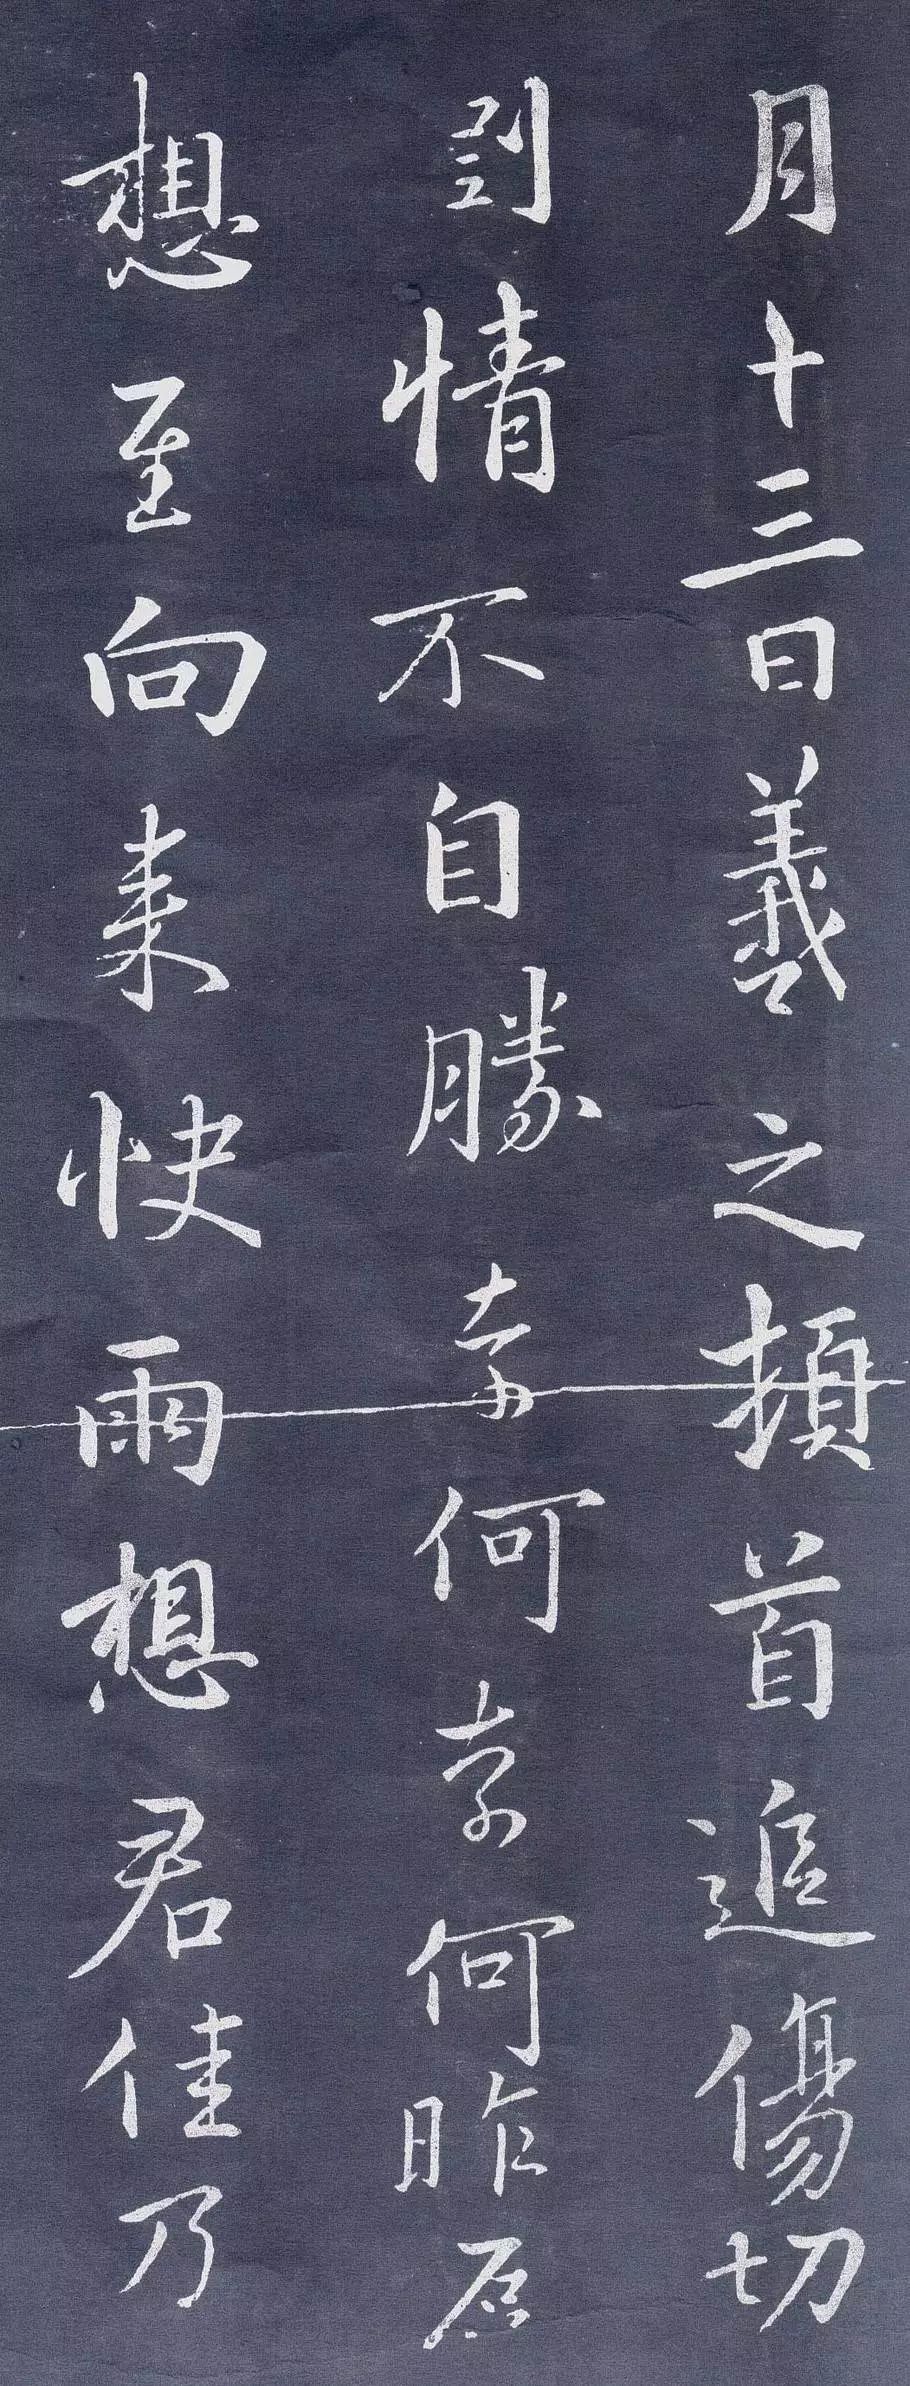 月十三日羲之頓首追傷切
剝情不自勝奈何奈何昨
想至向來快雨想君佳乃